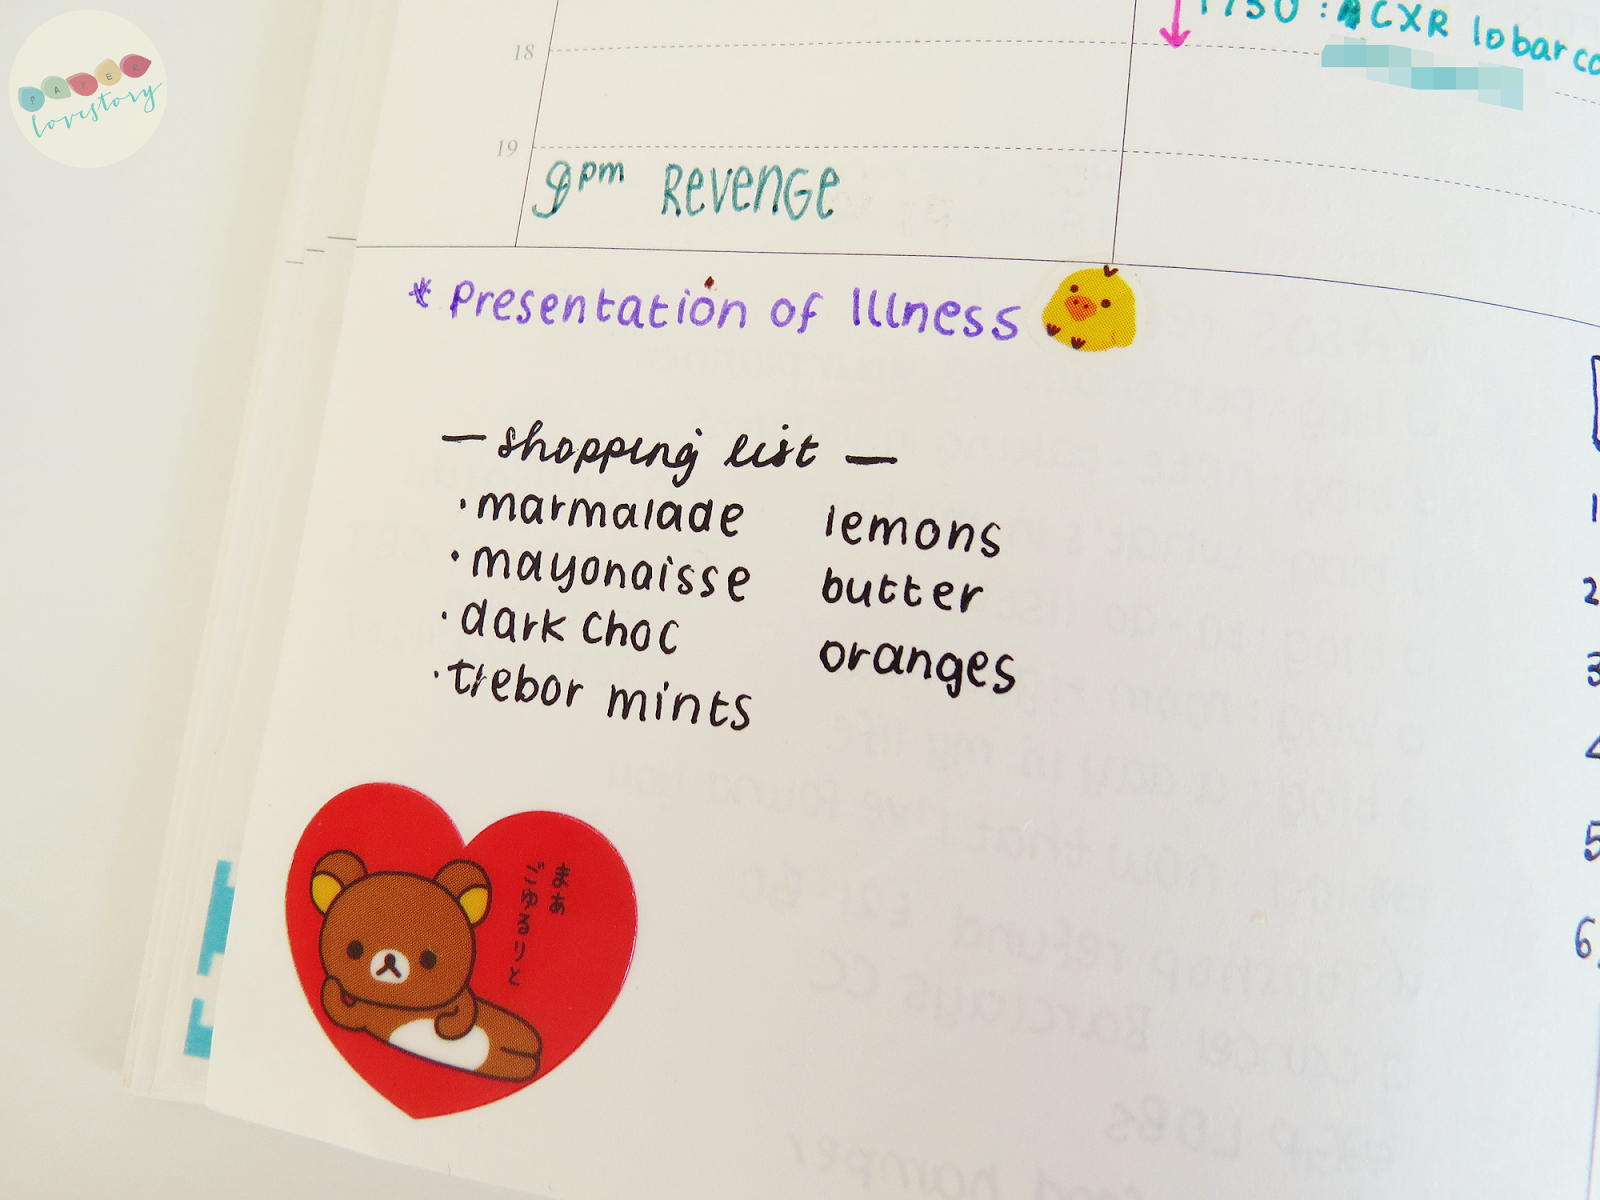 PAPER
lovestory
1730 : CXR lobar
18
19
9pm REVENGE
* Presentation of Illness
— shopping list —
· marmalade lemons
· mayonaisse butter
· dark choc oranges
· trebor mints
まあ
ごゆるりと
1
2
3
4
5
6.